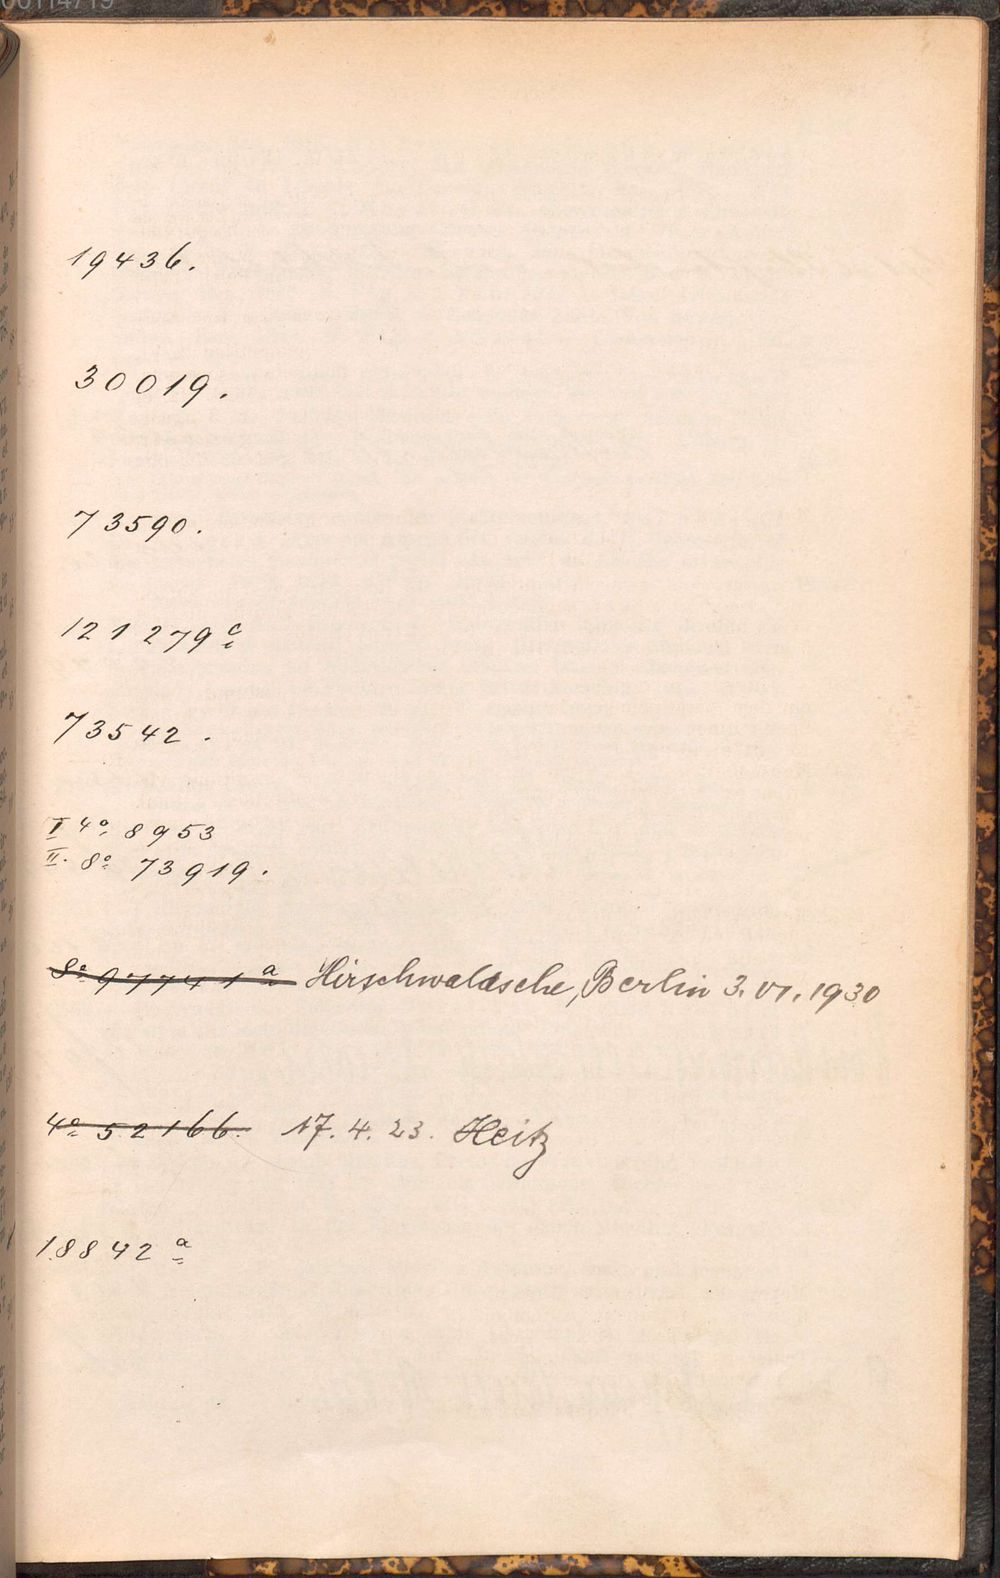 19436.
30019.
73590.
121279 c
73542.
I 4o. 8953
II. 8o 73919.
8o 97741 a Hirschwaldsche, Berlin 3. VI. 1930
4o 52166. 17.4.23. Heitz
18842 a